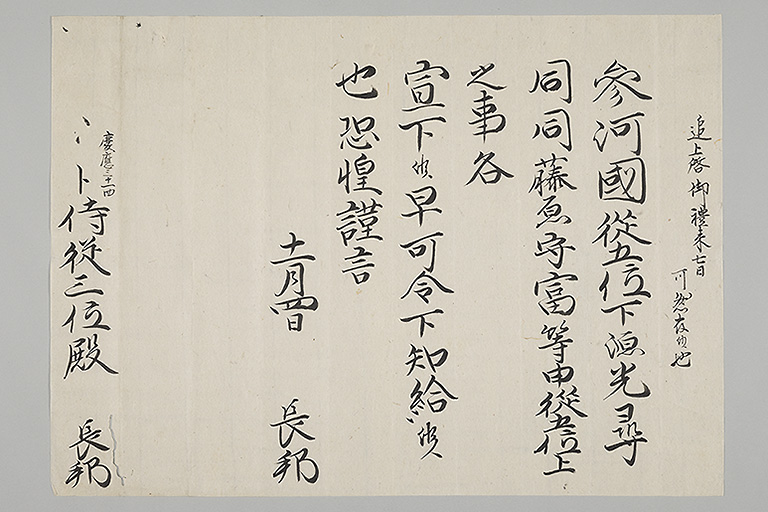 追上啓御禮来七日
可
也
參河國從五位下源光尋
同同藤原守富等申從五位上
之事各
宣下候早可令下知給候
也恐惶謹言
十一月四日
長邦
慶應三十一四
侍從三位殿
長邦